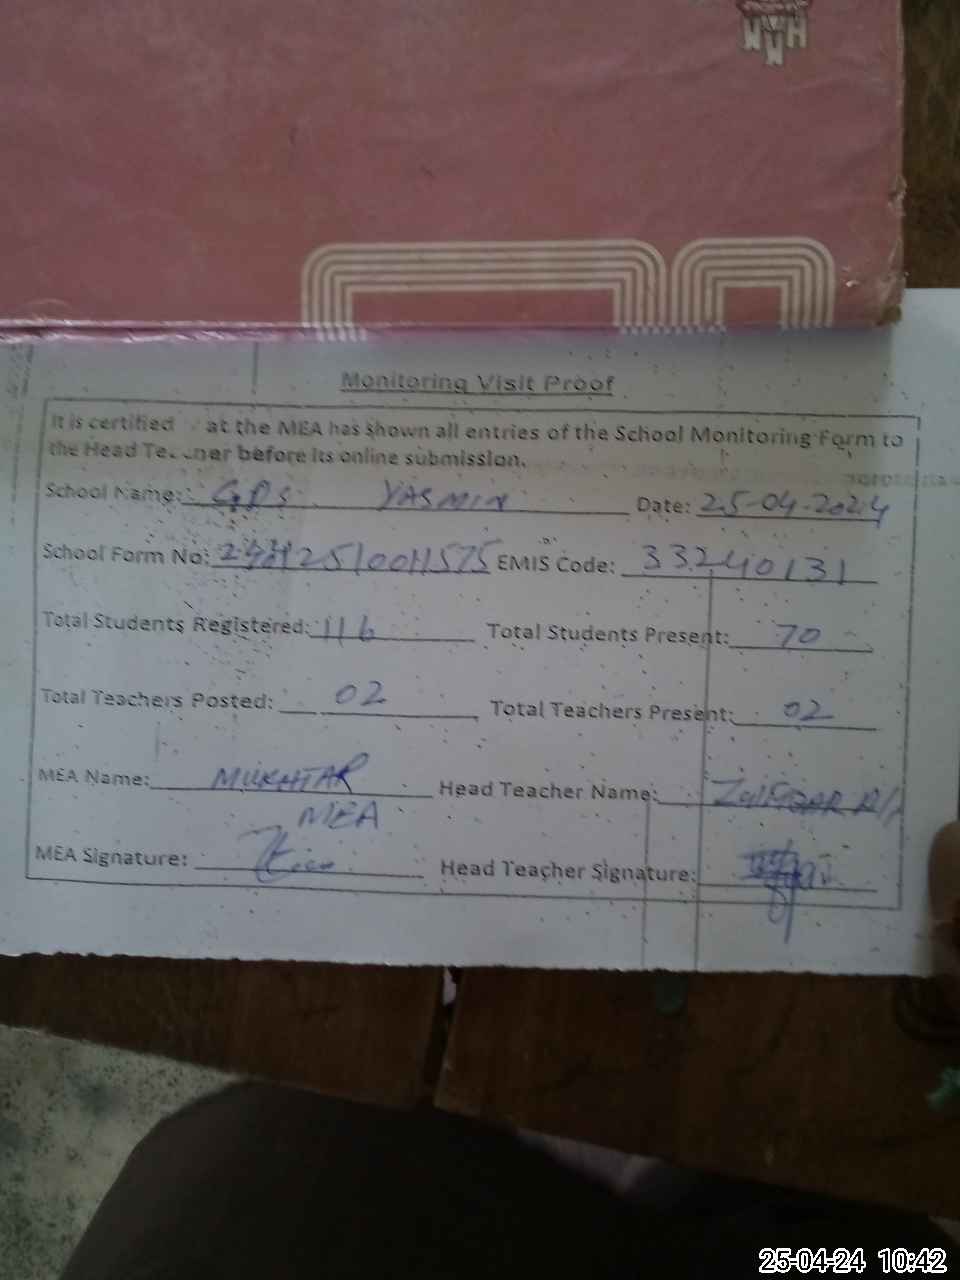 Monitoring Visit Proof
It is certified at the MEA has shown all entries of the School Monitoring Form to
the Head Teacher before its online submission.
School Name: GPS YASMIN Date: 25-04-2024
School Form No: EMIS Code: 33240131
Total Students Registered: 116 Total Students Present: 70
Total Teachers Posted: 02 Total Teachers Present: 02
MEA Name: MUKHTAR Head Teacher Name:
MEA
MEA Signature: Head Teacher Signature:
25-04-24 10:42